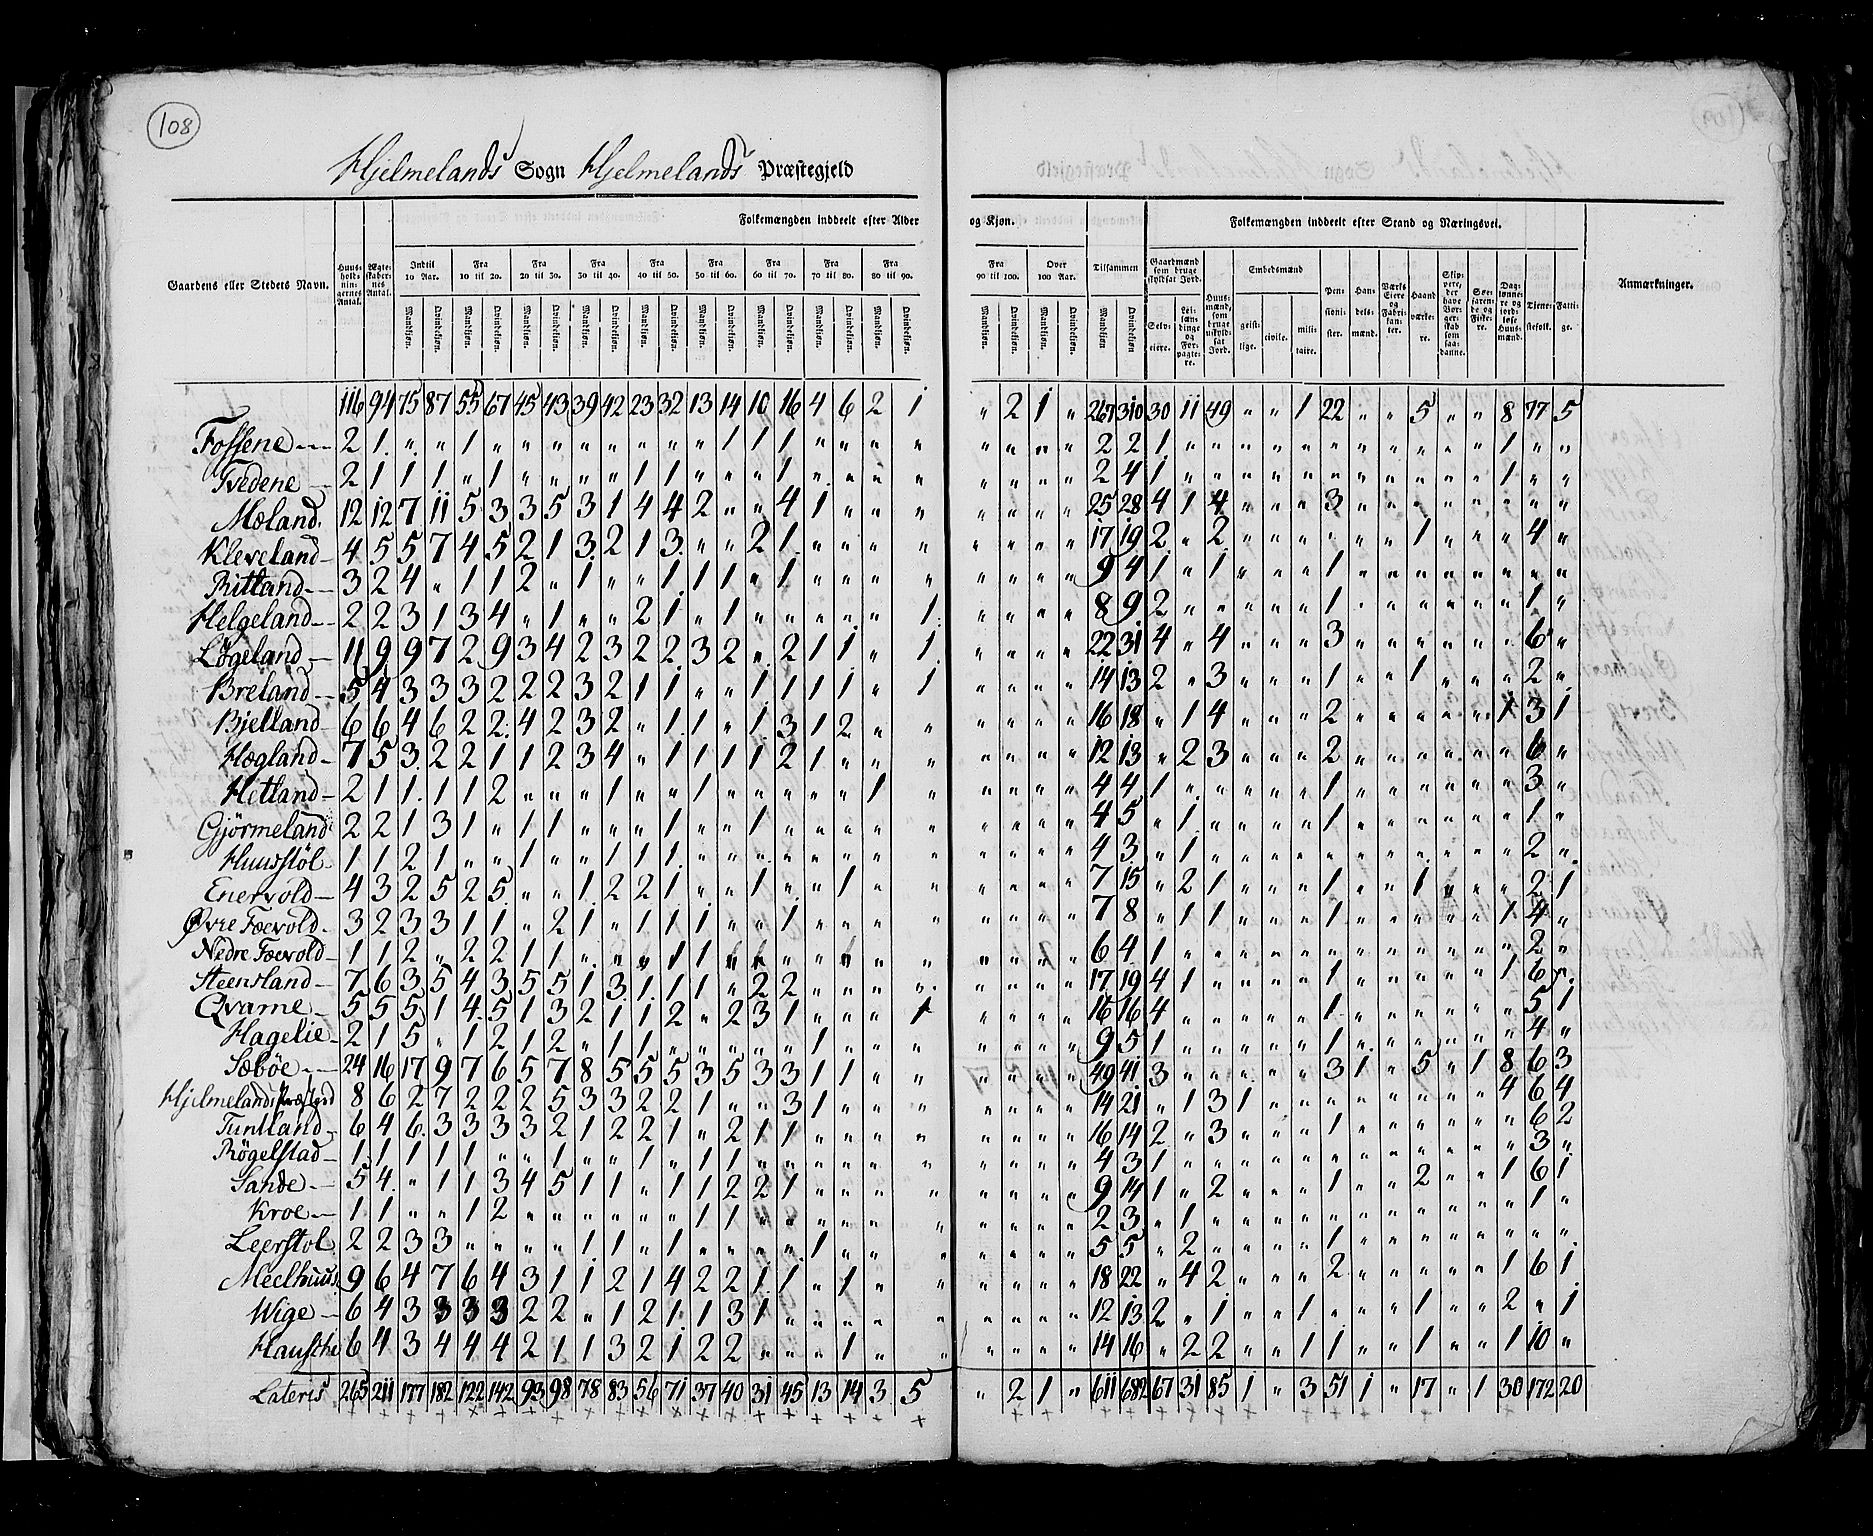 108
Hjelmelands Sogn Hjelmelands Præstegjeld
Folkemængden inddeelt efter Alder og Kjøn. Folkemængden inddeelt efter Stand og Næringsvei.
Gaardens eller Stedets Navn. Huus-holdnin-gernes Antal. Ægte-skaber-nes Antal. Indtil 10 Aar. Fra 10 til 20. Fra 20 til 30. Fra 30 til 40. Fra 40 til 50. Fra 50 til 60. Fra 60 til 70. Fra 70 til 80. Fra 80 til 90. Fra 90 til 100. Over 100 Aar. Tilsammen Gaardmænd som bruge skyldsat Jord. Embedsmænd Anmærkninger.
Mandkjøn. Qvindekjøn.
Selv-eiere. Lei-lændinge og For-pagte-re. Huus-mænd, som bruge uskyld-sat Jord. geist-lige. civile. mili-taire. Pen-sioni-ster. Han-dels-mænd. Værks Eiere og Fabri-kan-ter. Haand værke-re. Skip-pere, der have Bor-ger-skab som saa-danne. Søe-faren-de og Fiske-re. Dag-lønne-re og jord-løse Huus-mænd. Tjene-stefolk. Fatti-ge.
116 94 75 87 55 67 45 43 39 42 23 32 13 14 10 16 4 6 2 1 " 2 1 " 267 310 30 11 49 " " 1 22 " " 5 " " 8 77 5
Fossene 2 1 " " 1 " " " " " " " " 1 1 1 " " " " " " " " 2 2 1 " " " " " " " " " " " 1 " "
Tvedene 2 1 1 1 " 1 " " " " 1 1 " " " 1 " " " " " " " " 2 4 1 " " " " " " " " " " " 1 " "
Mæland 12 12 7 11 5 3 3 5 3 1 4 4 2 " " 4 1 " " " " " " " 25 28 4 1 4 " " " 3 " " " " " " " "
Kleveland 4 5 5 7 4 5 2 1 3 2 1 3 " " 2 1 " " " " " " " " 17 19 2 " 2 " " " " " " 1 " " " 4 "
Rittland 3 2 4 " 1 1 2 " 1 " " 1 1 1 " 1 " " " " " " " " 9 4 1 " 1 " " " 1 " " " " " " " "
Helgeland 2 2 3 1 3 4 " 1 " " 2 1 " 1 " " " " " 1 " " " " 8 9 2 " " " " " 1 " " " " " " 1 "
Løgeland 11 9 9 7 2 9 3 4 2 3 2 2 3 2 " 2 1 1 " 1 " " " " 22 31 4 " 4 " " " 3 " " " " " " 6 "
Breland 5 4 3 3 3 2 2 2 3 2 1 1 " " 1 1 1 1 " 1 " " " " 14 13 2 " 3 " " " 1 " " 1 " " " 2 "
Bjelland 6 6 4 6 2 2 4 2 3 2 " 1 1 " 1 3 1 2 " " " " " " 16 18 " 1 4 " " " 2 " " " " " 1 3 1
Hægland 7 5 3 2 2 1 1 2 3 4 " 1 1 1 1 2 1 " " " " " " " 12 13 " 2 3 " " " 2 " " " " " " 6 "
Hetland 2 1 1 1 1 2 " " " 1 " " 1 " " " " " 1 " " " " " 4 4 1 " " " " " 1 " " " " " " 3 "
Gjörmeland 2 2 1 3 1 " 1 1 " " " 1 " " 1 " " " " " " " " " 4 5 " 1 " " " " 1 " " " " " " 1 "
Huusstöl 1 1 2 1 " " 1 " " 1 1 1 " " " " " " " " " " " " 4 3 " 1 " " " " " " " " " " " 2 "
Enervold 4 3 2 5 2 5 " " 1 2 2 1 " " 1 " " 1 " " " " " " 7 15 " 2 1 " " " 1 " " 1 " " " 2 1
Øvre Foevold 3 2 3 3 1 1 " 2 1 " 1 1 1 " " 1 " " " " " " " " 7 8 " 1 1 " " " 1 " " " " " 1 4 "
Nedre Foevold 1 1 2 " 2 2 1 1 " " " 1 1 " " " " " " " " " " " 6 4 1 " " " " " " " " " " " " 2 "
Steensland 7 6 3 5 4 3 5 5 1 3 1 1 1 " 2 2 " " " " " " " " 17 19 4 1 " " " " 1 " " " " " 1 6 "
Qvame 5 5 5 1 4 5 1 3 2 1 1 2 " 2 3 1 " " " 1 " " " " 16 16 4 " " " " " 1 " " " " " " 5 1
Hagelie 2 1 5 " 1 2 1 2 " 1 1 " " " " " 1 " " " " " " " 9 5 1 " " " " " 1 " " " " " " 4 "
Sæböe 24 16 17 9 7 6 5 7 8 5 5 5 3 5 3 3 1 1 " " " " " " 49 41 3 " " " " " 3 1 " 5 " 1 8 6 3
Hjelmelands Præstgrd 8 6 2 7 2 2 2 5 3 3 2 2 1 " " 3 1 " " " " " " " 14 21 " 1 3 1 " " " " " " " " 4 6 4
Tuntland 6 4 6 3 3 3 3 2 1 2 2 1 " 2 1 1 " " " " " " " " 16 14 2 " 3 " " " 1 " " " " " " 6 2
Rögelstad 1 1 1 1 1 " " 1 " " 1 " 1 1 " " " " " " " " " " 4 3 1 " " " " " " " " " " " " 3 "
Sande 5 4 " 1 1 3 4 5 1 1 " 1 1 2 2 1 " " " " " " " " 9 14 1 " 2 " " " 1 " " 2 " " 1 6 1
Kroe 1 1 " " 1 2 " " " " " " 1 1 " " " " " " " " " " 2 3 " 1 " " " " " " " " " " " 1 "
Leerstol 2 2 3 3 " " " " 1 1 " 1 " " " " 1 " " " " " " " 5 5 " 2 " " " " 1 " " " " " " " "
Meelhuus 9 6 4 7 6 4 3 1 1 2 1 4 2 2 1 1 " 1 " " " " " " 18 22 " 4 2 " " " 2 " " " " " 1 6 1
Wige 6 4 3 3 3 3 2 2 " 1 2 1 1 3 1 " " " " " " " " " 12 13 2 " 1 " " 1 " " " 1 " " 2 " 1
Hauske 6 4 3 4 4 4 2 1 1 3 2 1 2 2 " " " 1 " " " " " " 14 16 " 2 2 " " 1 1 " " 1 " " 1 10 "
Lateris 265 211 177 182 122 142 93 98 78 83 56 71 37 40 31 45 13 14 3 5 " 2 1 " 611 682 67 31 85 1 " 3 51 1 " 17 " 1 30 172 20